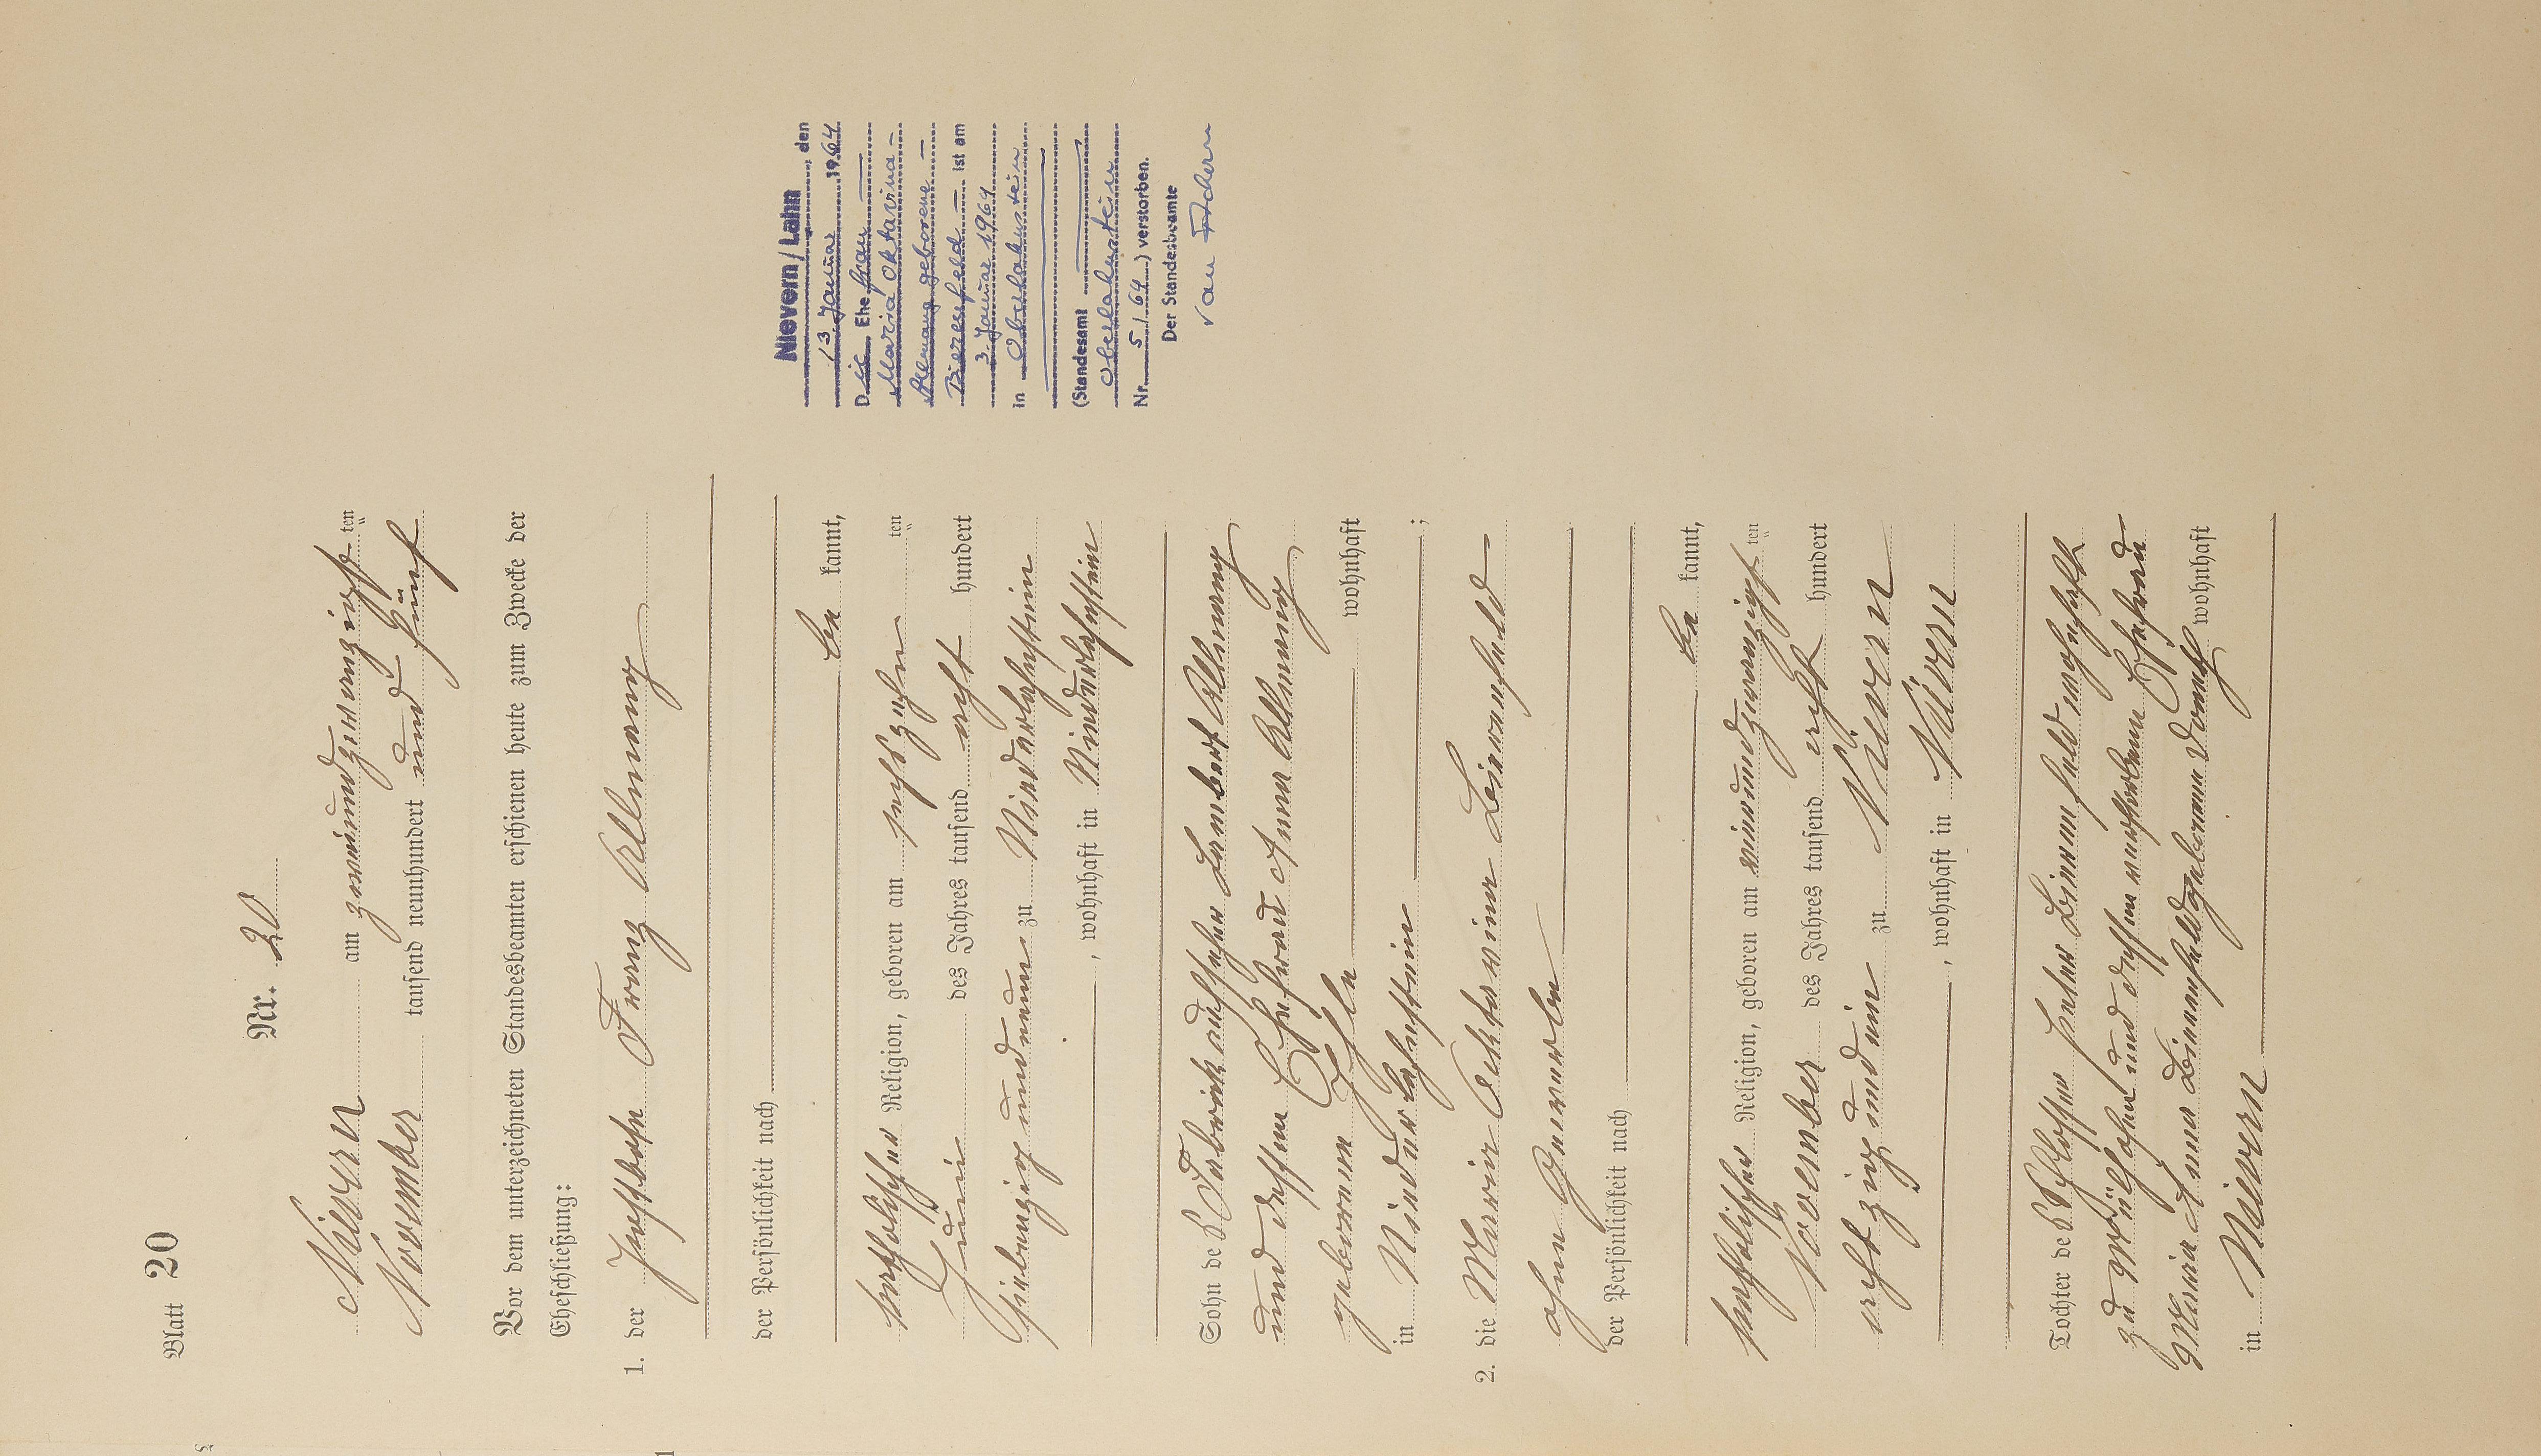 Blatt 20
Nr. 20
Nievern am zweiundzwanzigsten
November tausend neunhundert und fünf
Vor dem unterzeichneten Standesbeamten erschienen heute zum Zwecke der
Eheschließung:
1. der Postbote Franz Allmang
der Persönlichkeit nach
be kannt,
katholischer Religion, geboren am sechszehn ten
Juni des Jahres tausend acht hundert
siebenzig und neun zu Niederlahnstein
, wohnhaft in Niederlahnstein
Sohn des Fabrikaufsehers Lambert Allmang
und dessen Ehefrau Anna Allmang
geborenen wohnhaft
in Niederlahnstein ;
2. die Maria Oktavina Bierenfeld
ohne Gewerbe
der Persönlichkeit nach
be kannt,
katholischer Religion, geboren am einundzwanzigsten
November des Jahres tausend acht hundert
achtzig und ein zu Nievern
, wohnhaft in Nievern
Tochter des Schlossers Peter Bierenfeld wohnhaft
zu und dessen verstorbenen Ehefrau
Maria Anna Bierenfeld geborenen wohnhaft
in Nievern
Nievern/Lahn, den
13. Januar 1964
Die Ehefrau
Maria Oktavina
Allmang geborene
Bierenfeld ist am
3. Januar 1964
in Oberlahnstein
(Standesamt
Oberlahnstein
Nr. 5/64) verstorben.
Der Standesbeamte